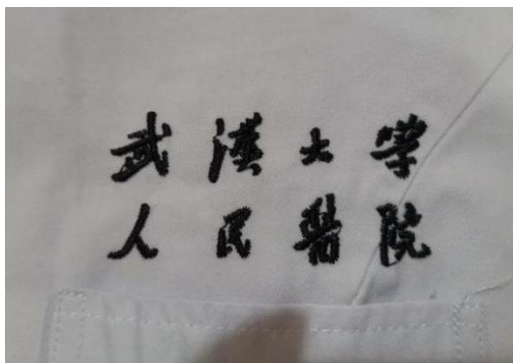 武漢大学
人民醫院